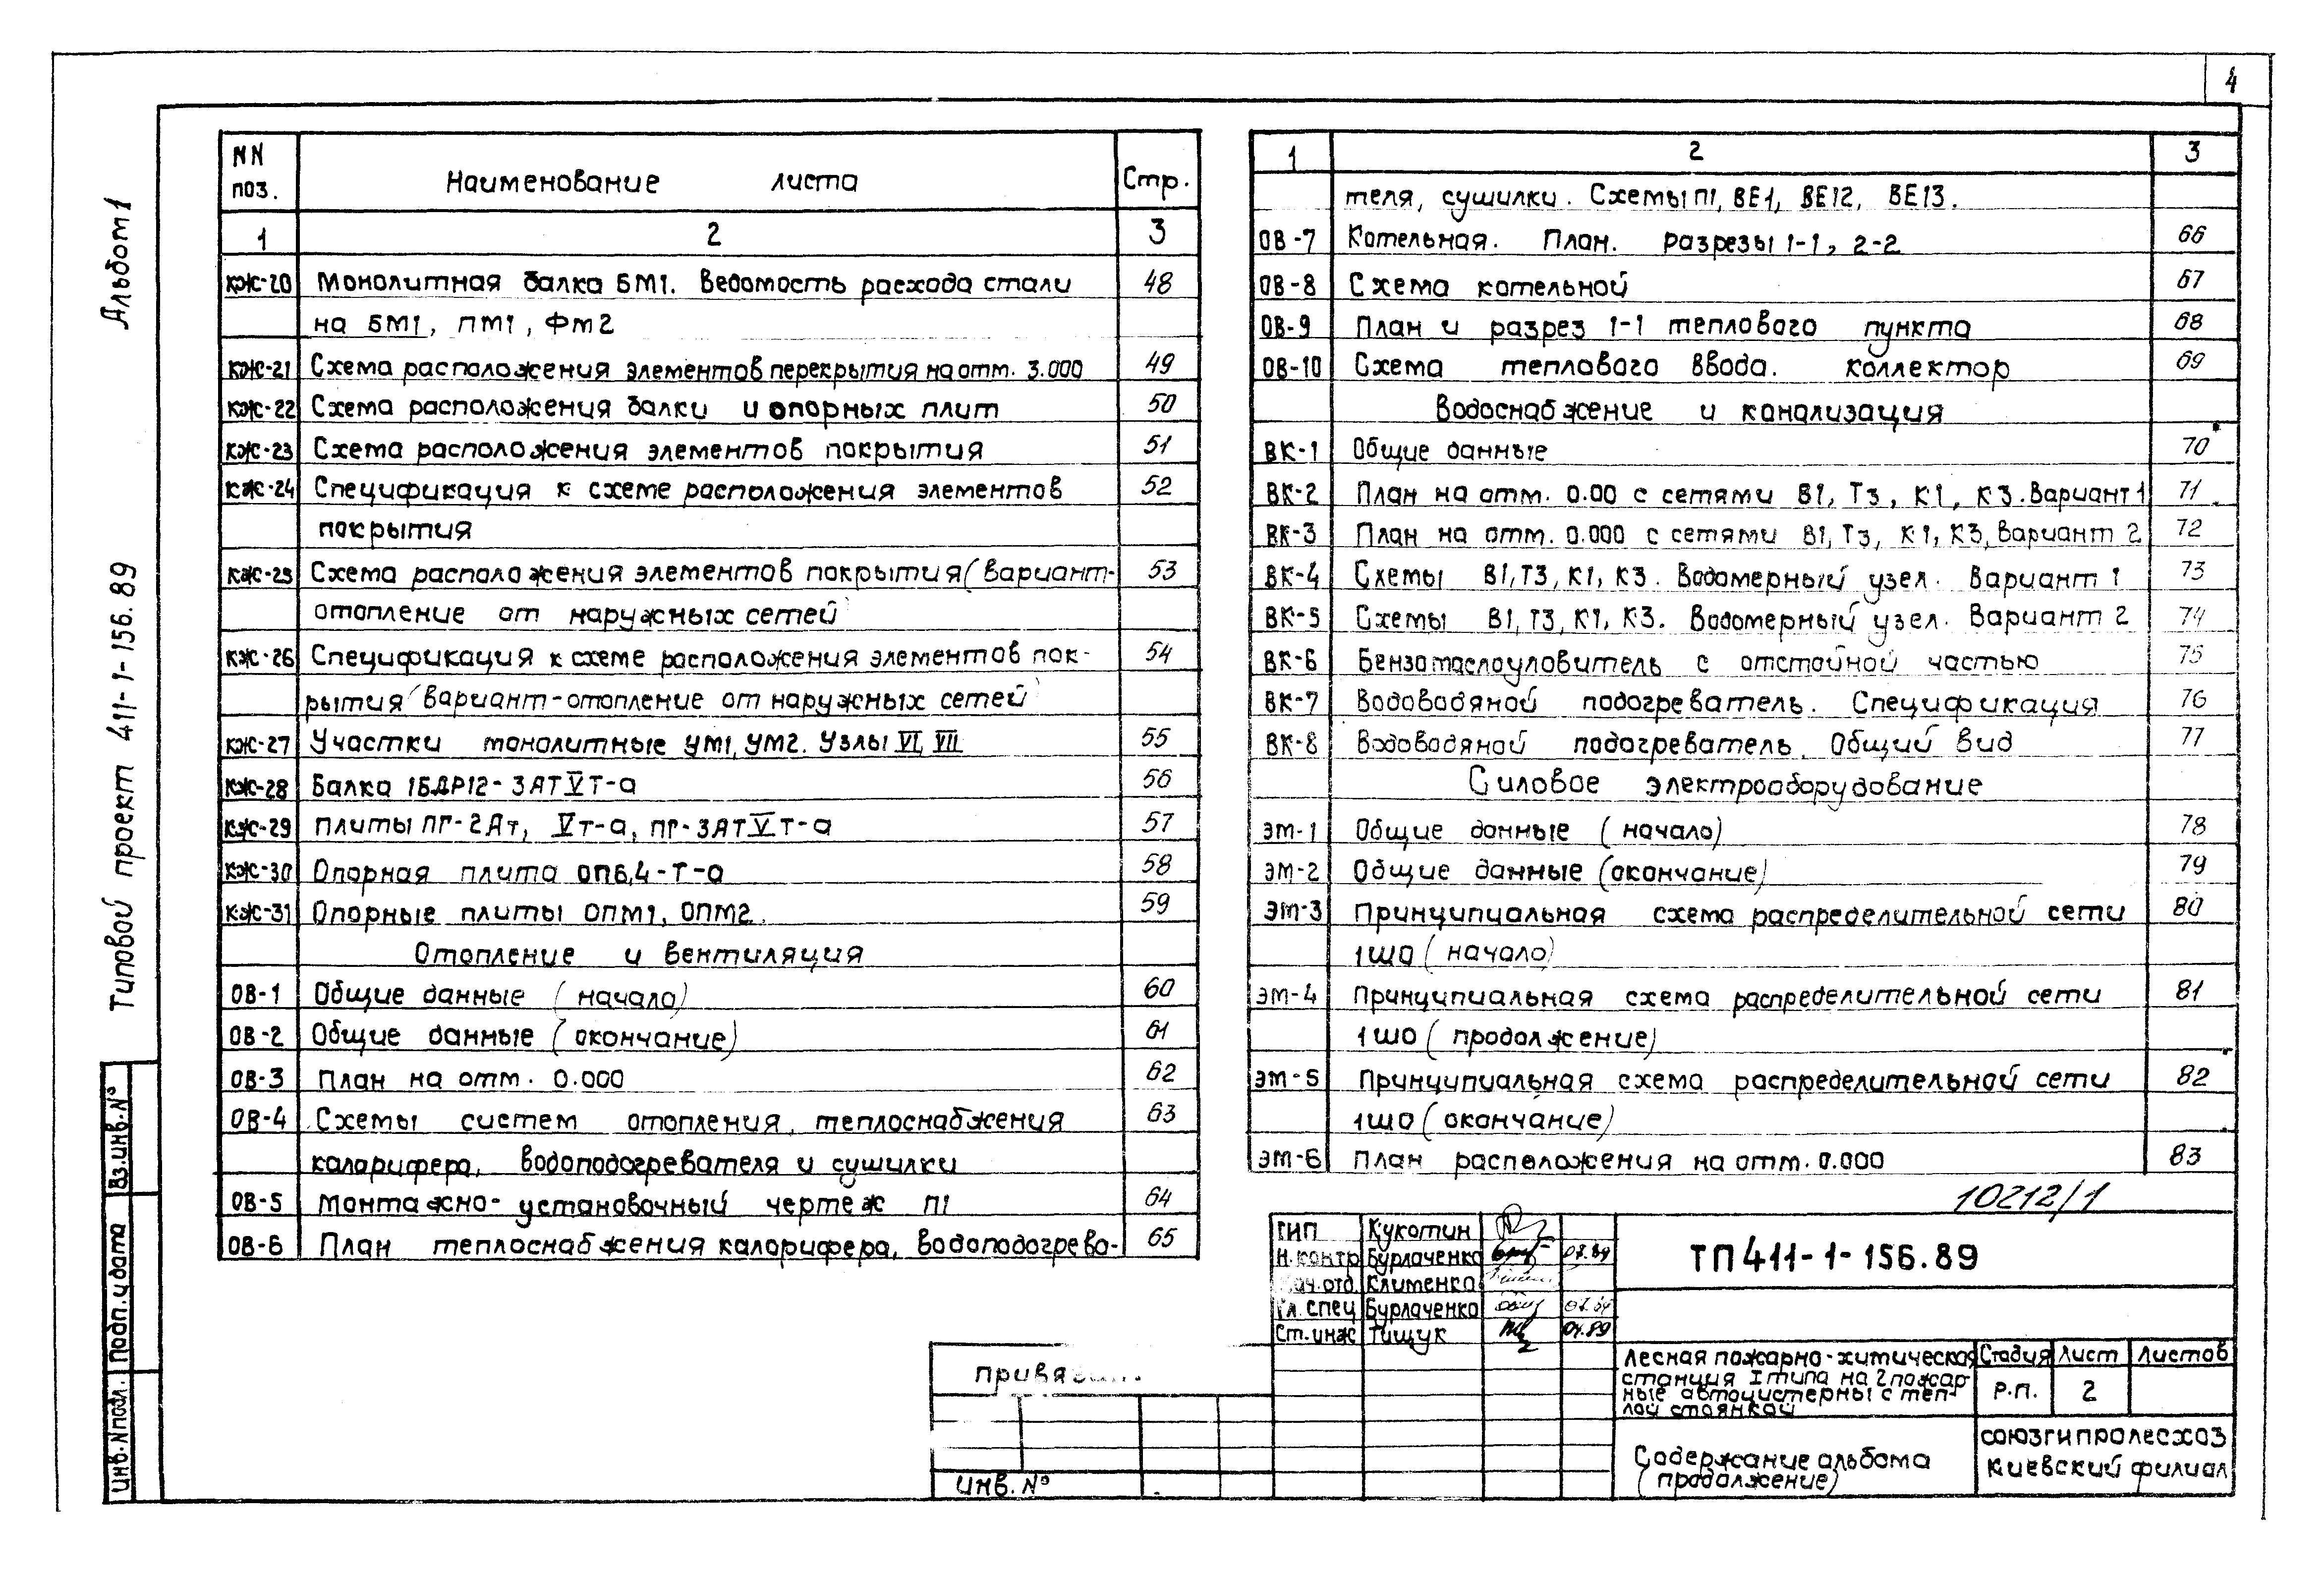 4
Альбом 1
Типовой проект 411-1-156.89
Вз.инв.N°
Подп.и дата
Инв.N подл.
NN поз. Наименование листа Стр.
1 2 3
КЖ-20 Монолитная балка БМ1. Ведомость расхода стали 48
на БМ1, ПМ1, ФМ2
КЖ-21 Схема расположения элементов перекрытия на отм. 3.000 49
КЖ-22 Схема расположения балки и опорных плит 50
КЖ-23 Схема расположения элементов покрытия 51
КЖ-24 Спецификация к схеме расположения элементов 52
покрытия
КЖ-25 Схема расположения элементов покрытия (вариант- 53
отопление от наружных сетей)
КЖ-26 Спецификация к схеме расположения элементов пок- 54
рытия (вариант-отопление от наружных сетей)
КЖ-27 Участки монолитные УМ1, УМ2. Узлы VI, VII 55
КЖ-28 Балка 1БДР12-3АТVТ-а 56
КЖ-29 Плиты ПГ-2Ат, VТ-а, ПГ-3АТVТ-а 57
КЖ-30 Опорная плита ОП6,4-Т-а 58
КЖ-31 Опорные плиты ОПМ1, ОПМ2. 59
Отопление и вентиляция
ОВ-1 Общие данные (начало) 60
ОВ-2 Общие данные (окончание) 61
ОВ-3 План на отм. 0.000 62
ОВ-4 Схемы систем отопления, теплоснабжения 63
калорифера, водоподогревателя и сушилки
ОВ-5 Монтажно-установочный чертеж П1 64
ОВ-6 План теплоснабжения калорифера, водоподогрева- 65
1 2 3
теля, сушилки. Схемы П1, ВЕ1, ВЕ12, ВЕ13.
ОВ-7 Котельная. План. Разрезы 1-1, 2-2 66
ОВ-8 Схема котельной 67
ОВ-9 План и разрез 1-1 теплового пункта 68
ОВ-10 Схема теплового ввода. Коллектор 69
Водоснабжение и канализация
ВК-1 Общие данные 70
ВК-2 План на отм. 0.00 с сетями В1, Т3, К1, К3. Вариант 1 71
ВК-3 План на отм. 0.000 с сетями В1, Т3, К1, К3, Вариант 2 72
ВК-4 Схемы В1, Т3, К1, К3. Водомерный узел. Вариант 1 73
ВК-5 Схемы В1, Т3, К1, К3. Водомерный узел. Вариант 2 74
ВК-6 Бензомаслоуловитель с отстойной частью 75
ВК-7 Водоводяной подогреватель. Спецификация 76
ВК-8 Водоводяной подогреватель. Общий вид 77
Силовое электрооборудование
ЭМ-1 Общие данные (начало) 78
ЭМ-2 Общие данные (окончание) 79
ЭМ-3 Принципиальная схема распределительной сети 80
1ШО (начало)
ЭМ-4 Принципиальная схема распределительной сети 81
1ШО (продолжение)
ЭМ-5 Принципиальная схема распределительной сети 82
1ШО (окончание)
ЭМ-6 План расположения на отм. 0.000 83
10212/1
ГИП Кукотин
Н.контр Бурлаченко 07.89
Нач.отд. Клименко
Гл.спец Бурлаченко
Ст.инж Тищук 04.89
ТП 411-1-156.89
Лесная пожарно-химическая
станция I типа на 2 пожар-
ные автоцистерны с теп-
лой стоянкой
Стадия Лист Листов
Р.П. 2
Содержание альбома
(продолжение)
Союзгипролесхоз
Киевский филиал
Инв. N°